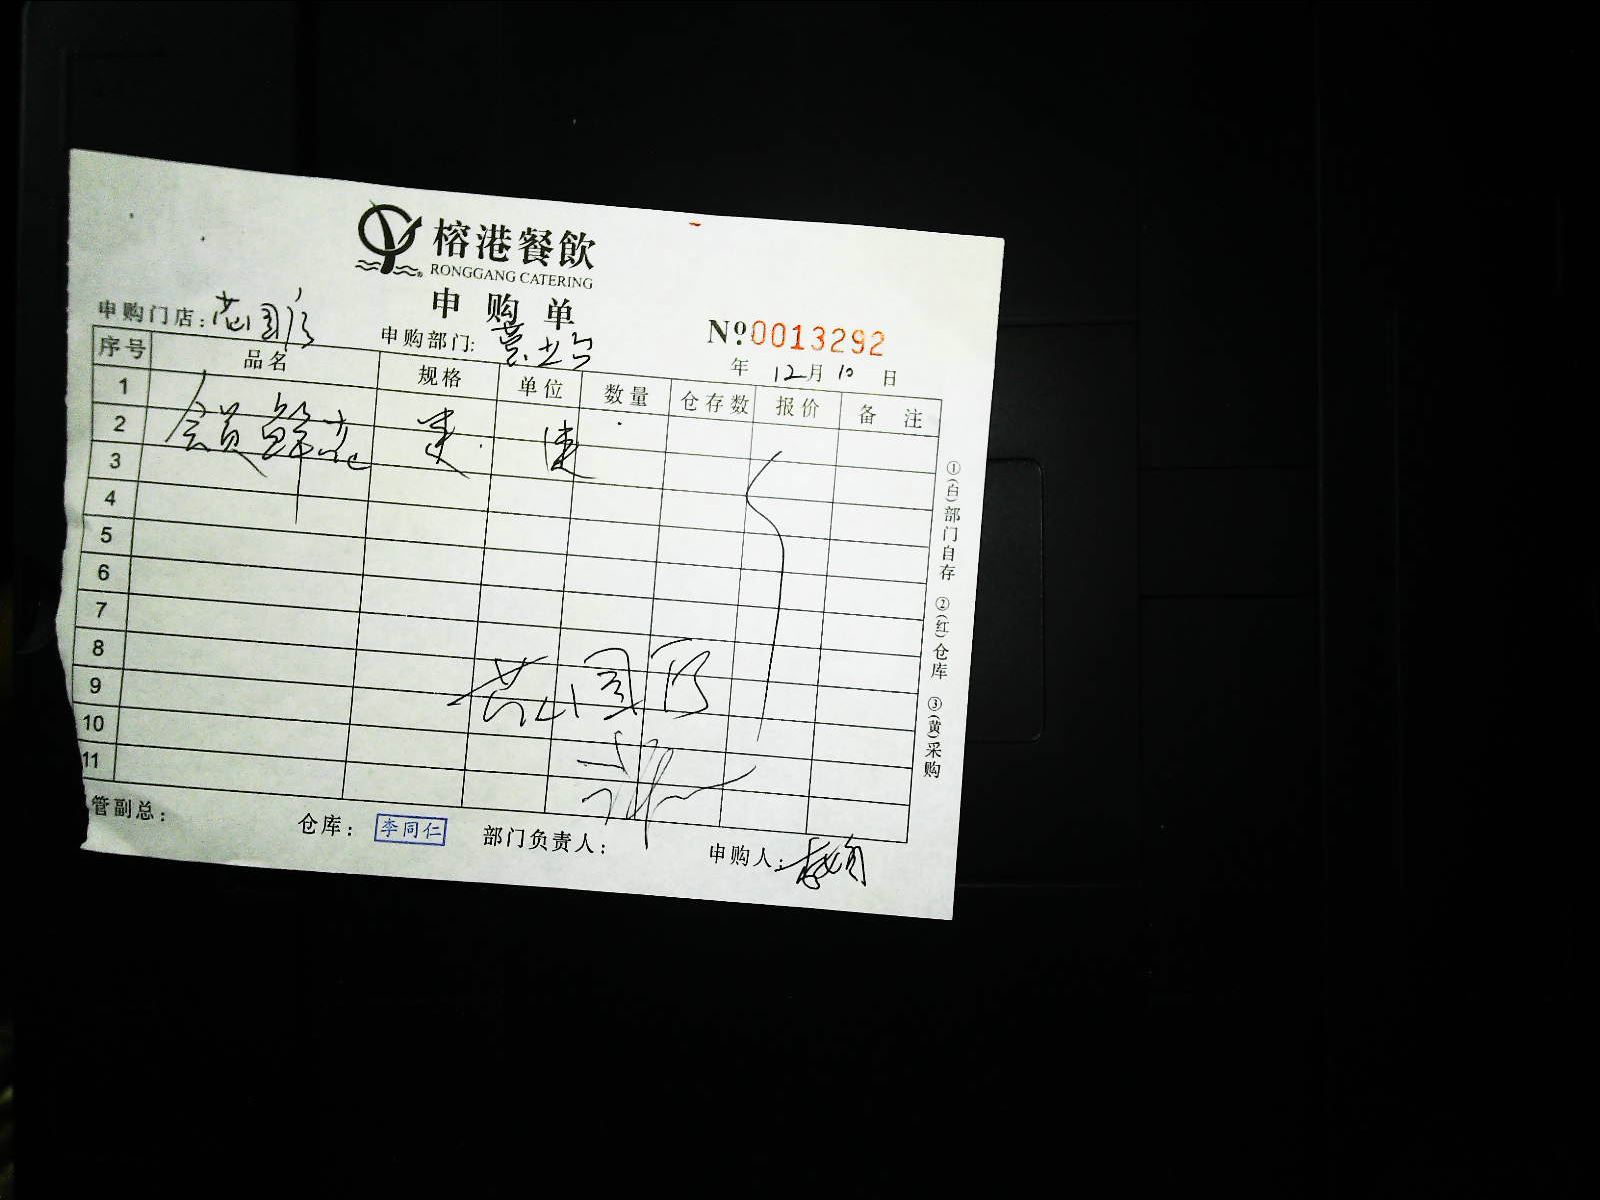 榕港餐飲
RONGGANG CATERING
申购单
申购门店:
申购部门: 营业台
№0013292
年 12月 10 日
序号 品名 规格 单位 数量 仓存数 报价 备注
1
2 会员鲜花
3
4
5
6
7
8
9
10
11
①(白)部门自存 ②(红)仓库 ③(黄)采购
管副总:
仓库: 李同仁
部门负责人:
申购人: